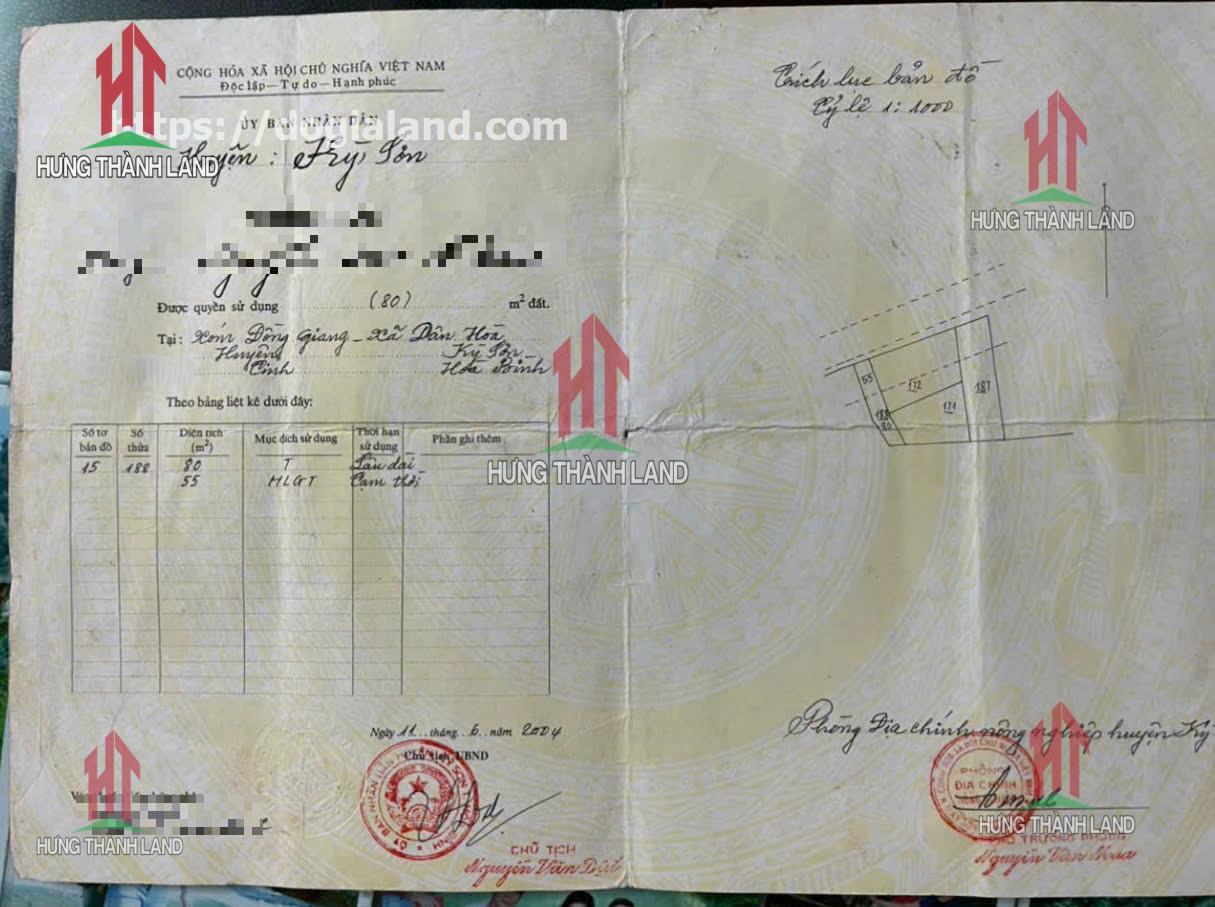 CỘNG HÒA XÃ HỘI CHỦ NGHĨA VIỆT NAM
Độc lập — Tự do — Hạnh phúc
ỦY BAN NHÂN DÂN
https://dogialand.com
Huyện : Kỳ Sơn
HƯNG THÀNH LAND
Được quyền sử dụng (80) m² đất.
Tại: Xóm Đồng Giang - Xã Dân Hoà
Huyện Kỳ Sơn
Tỉnh Hoà Bình
Theo bảng liệt kê dưới đây:
Số tờ bản đồ Số thửa Diện tích (m²) Mục đích sử dụng Thời hạn sử dụng Phần ghi thêm
15 188 80 T Lâu dài
55 HLGT Tạm thời
Ngày 11 tháng 6 năm 2004
Chủ tịch UBND
CHỦ TỊCH
Nguyễn Văn
HƯNG THÀNH LAND
HƯNG THÀNH LAND
Trích lục bản đồ
Tỷ lệ 1:1000
HƯNG THÀNH LAND
55
172
187
171
188
80
Phòng Địa chính nông nghiệp huyện Kỳ
PHÒNG
ĐỊA CHÍNH
HƯNG THÀNH LAND
PHÓ TRƯỞNG PHÒNG
Nguyễn Văn